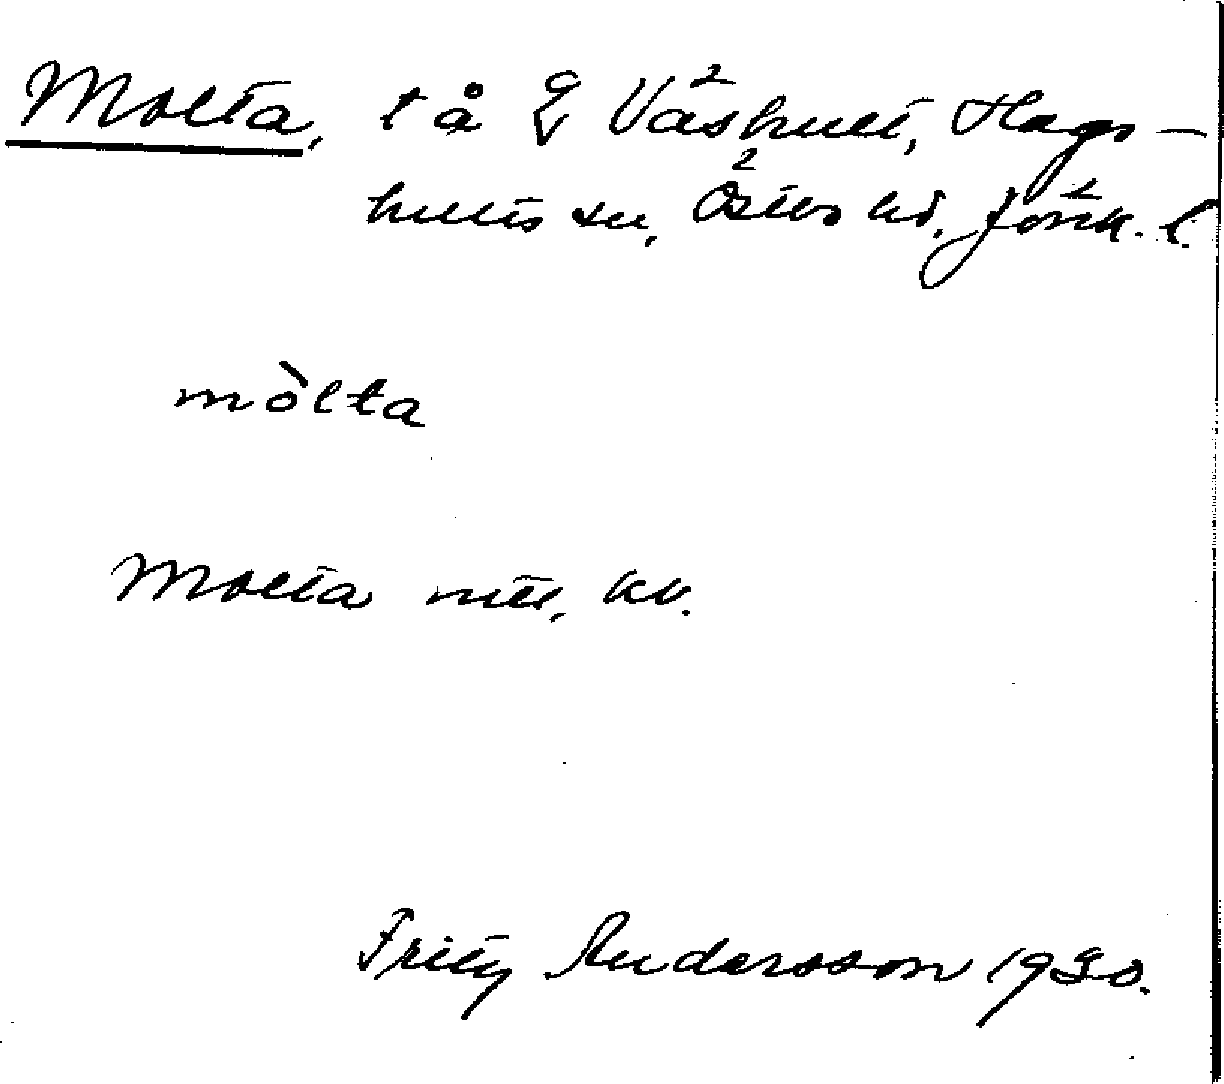 Molta, t å g Våshult, Hags-
hults sn, Östbo hd, Jönk. l.
mòlta
Molta mtl, kv.
Fritz Andersson 1930.